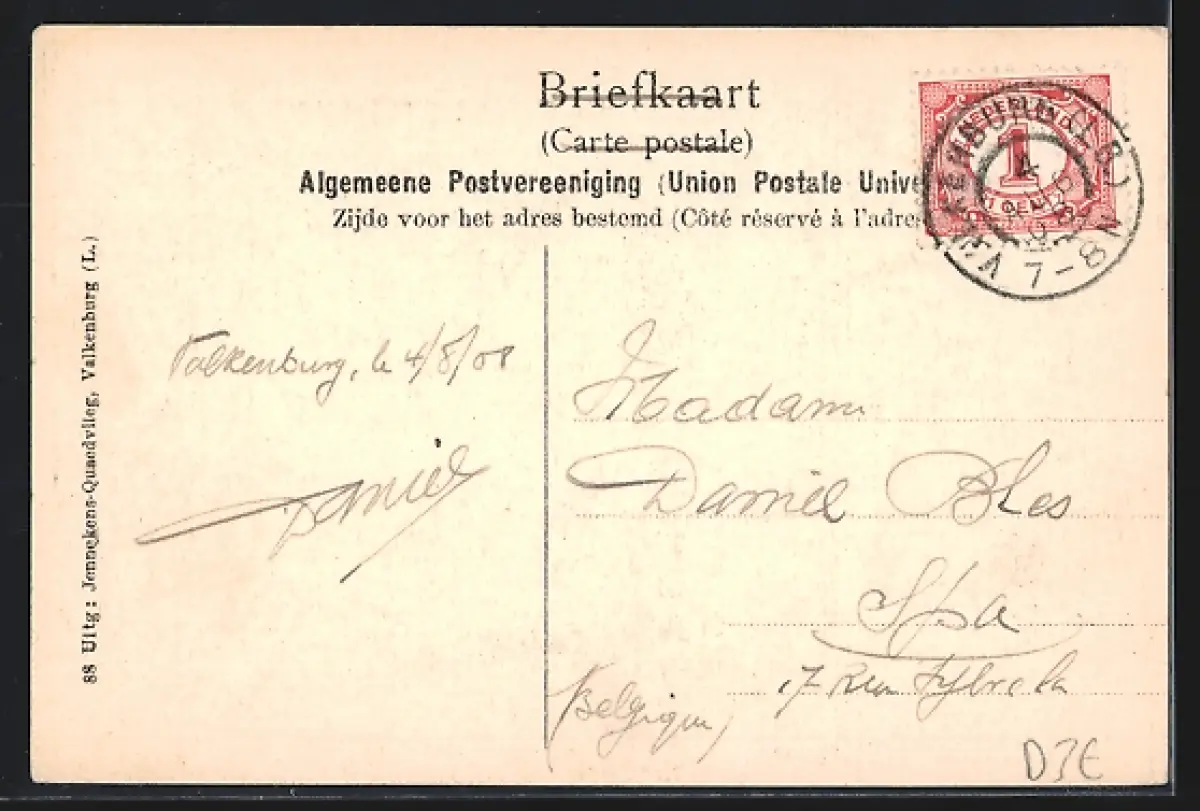 Briefkaart
(Carte postale)
Algemeene Postvereeniging (Union Postale Unive
Zijde voor het adres bestemd (Côté réservé à l'adres
NEDERLAND
1
CENT
VALKENBURG (LB)
4
7-8 N
88 Uitg: Jennekens-Quaedvlieg, Valkenburg (L.)
Valkenburg, le 4/8/08
Daniel
Madame
Daniel Bles
Spa
17 Rue
(Belgique)
D3E